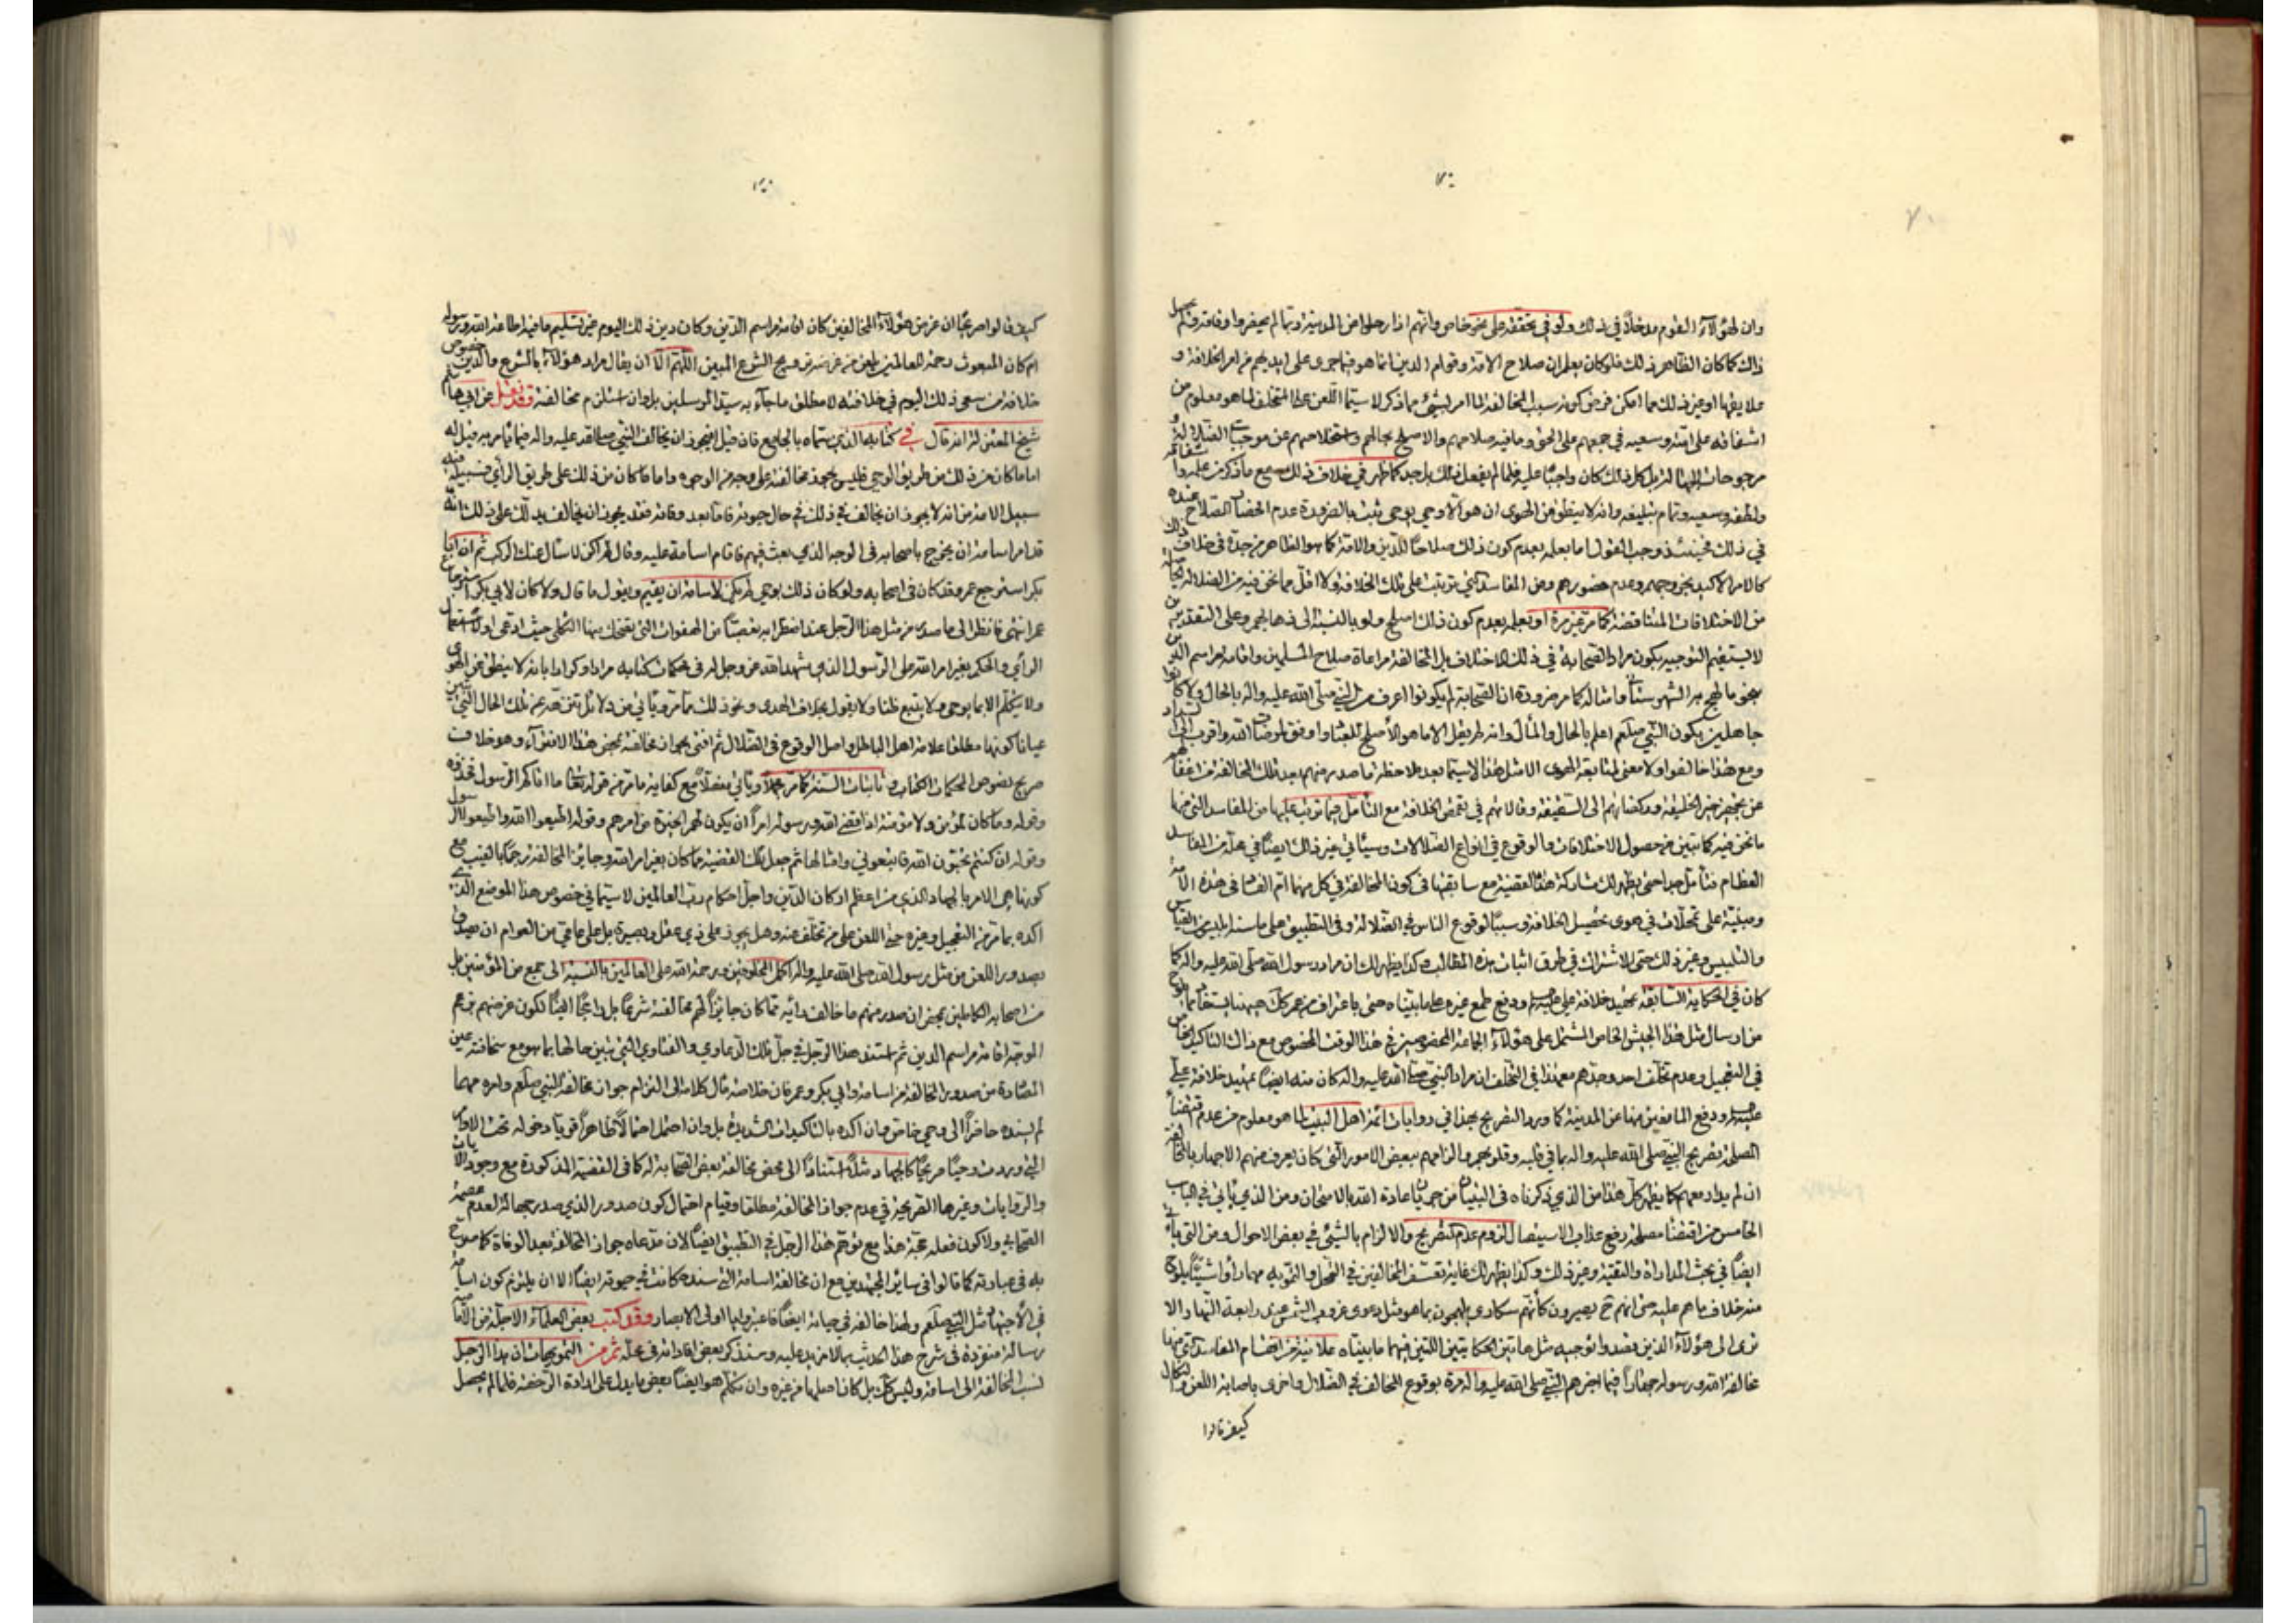 ٧٠
وان لهؤلاء القوم مدخلاً في ذلك ولو في تحققه على نحو خاص وانهم اذا رحلوا من المدينة وربما لم يحضروا وفاته
ذلك كما كان الظاهر ذلك فلو كان يعلم ان صلاح الامة وقوام الدين انما هو فيما جرى على ايديهم من امر الخلافة و
او غير ذلك مما امكن فرض كونه سبب المخالفة لما امر بشئ مما ذكر لا سيما اللعن على المتخلف لما هو معلوم من
اشفاقه على امته وسعيه في جمعهم على الحق وما فيه صلاحهم والاصلح بحالهم واستخلاصهم عن موجبات الضلالة و
بل كل ذلك كان واجبًا عليه فلما لم يفعل ذلك بل جد كما ظهر في خلاف ذلك مع ما ذكر من علمه و
ولطفه وسعيه وتمام تبليغه وانه لا ينطق عن الهوى ان هو الا وحي يوحى ثبت بالضرورة عدم الصلاح عنده
في ذلك فحينئذ وجب القول اما بعلمه بعدم كون ذلك صلاحًا للدين والامة كما هو الظاهر من جده في خلاف ذلك
كالامر الاكيد بخروجهم وعدم حضورهم ومن المفاسد التي ترتبت على تلك الخلافة ولا اقل مما نحن فيه من الضلالة
من الاختلافات المتناقضة كما مر غير مرة او بعلمه بعدم كون ذلك اصلح ولو بالنسبة الى ذهابهم وعلى التقديرين
لا يستقيم التوجيه بكون مراد الصحابة في ذلك الاختلاف بل المخالفة مراعاة صلاح المسلمين واقامة مراسم الدين
بنحو ما لهج به الشهرستاني وامثاله كما مر ضرورة ان الصحابة لم يكونوا اعرف من النبي صلى الله عليه واله بالحال ولا كانوا
جاهلين بكون النبي صلعم اعلم بالحال والمآل وانه لم يقل الا ما هو الاصلح للعباد واوفق لمرضات الله واقرب الى السداد
ومع هذا خالفوا ولا معنى لمتابعة الهوى الا مثل هذا لا سيما بعد ملاحظة ما صدر منهم بعد تلك المخالفة من
عن تجهيز خير الخليقة وركضانهم الى السقيفة وقالاتهم في تقمص الخلافة مع التأمل فيما ترتب عليها من المفاسد التي منها
ما نحن فيه كما تبين من حصول الاختلافات والوقوع في انواع الضلالات وسيأتي غير ذلك ايضًا في محله من المفاسد
العظام فتأمل جدا حتى يظهر لك مشاركة هذه القضية مع سابقتها في كون المخالفة في كل منهما ام الفساد في هذه الامة
ومبنية على تمحلات في هوى تحصيل الخلافة وسببًا لوقوع الناس في الضلالة وفي التطبيق على ما سنه ابليس من القياس
والتلبيس وغير ذلك حتى الاشتراك في طرق اثبات هذه المطالب وكذا يظهر لك ان مراد رسول الله صلى الله عليه واله كما
كان في الحكاية السابقة تمهيد خلافة علي ودفع طمع غيره على ما بيناه حتى باعتراف من عمر
من ارسال مثل هذا الجيش الخاص المشتمل على هؤلاء الجماعة المخصوصين في هذا الوقت المخصوص مع ذلك التأكيد الخاص
في التعجيل وعدم تخلف احد وحدهم معه في التخلف ان مراد النبي صلى الله عليه واله كان منه ايضا تمهيد خلافة علي
ودفع المانعين منها عن المدينة كما ورد التصريح بهذا في روايات ائمة اهل البيت لما هو معلوم من عدم
المصلحة تصريح النبي صلى الله عليه واله بما في قلبه وقلوبهم والزامهم ببعض الامور التي كان يعرف منهم الاجهار بالمخالفة
ان لم يدار معهم كما يظهر كل هذا من الذي ذكرناه في البنيان من جريان عادة الله بالامتحان ومن الذي يأتي في الباب
الخامس من اقتضاء مصلحة رفع عذاب الاستيصال لزوم عدم التصريح والالزام بالشئ في بعض الاحوال ومن التي يأتي
ايضًا في بحث المداراة والتقية وغير ذلك وكذا يظهر لك غاية تعسف المخالفين في التمحل والتمويه مهما رأوا شيئًا يلوح
منه خلاف ما هم عليه حتى انهم يصيرون كأنهم سكارى يلهجون بما هو مثل دعوى غروب الشمس عند رابعة النهار الا
ترى الى هؤلاء الذين قصدوا توجيه مثل هاتين الحكايتين اللتين فيهما ما بيناه علانية من اقسام المفاسد التي منها
مخالفة الله ورسوله جهارًا فيما اخبرهم النبي صلى الله عليه واله مرة بوقوع المخالف في الضلال واخرى باصابة اللعن والنكال
كيف قالوا
كيف قالوا بصرعًا ان غرض هؤلاء المخالفين كان اقامة مراسم الدين وكان دين ذلك اليوم غير تسليم ما فيه اطاعة الله ورسوله
ام كان المبعوث رحمة للعالمين يلعن من غرضه ترويج الشرع المبين اللهم الا ان يقال مراد هؤلاء بالشرع والدين خصوص
خلافة من سعى ذلك اليوم في خلافته لا مطلق ما جاء به سيد المرسلين بل وان استلزم مخالفته فقد نقل عن ابي هاشم
شيخ المعتزلة انه قال في كتابه الذي سماه بالجامع فان قيل افيجوز ان يخالف النبي صلى الله عليه واله فيما يأمر به قيل له
اما ما كان من ذلك من طريق الوحي فليس يجوز مخالفته على وجه من الوجوه واما ما كان من ذلك على طريق الرأي فسبيله فيه
سبيل الائمة من انه لا يجوز ان يخالف في ذلك في حال حيوته فاما بعد وفاته فقد يجوز ان يخالف يدلك على ذلك انه
قد امر اسامة ان يخرج باصحابه في الوجه الذي بعث فيهم فاقام اسامة عليه وقال لم اكن لاسأل عنك الركب ثم ان ابا
بكر استرجع عمر وقد كان في اصحابه ولو كان ذلك بوحي لم يكن لاسامة ان يقيم ويقول ما قال ولا كان لابي بكر استرجاع
عمر انتهى فانظر الى ما صدر من مثل هذا الرجل عند اضطرابه تعصبًا من الهفوات التي تضحك بها الثكلى حيث ادعى اولا استعمال
الرأي والحكم بغير امر الله على الرسول الذي شهد الله عز وجل له في محكمات كتابه مرارا وكرارا بانه لا ينطق عن الهوى
ولا يتكلم الا بما يوحى ولا يتبع ظنا ولا يقول بخلاف الهدى ونحو ذلك مما مر ويأتي من دلائل
عيانا كونها مطلقا علامة اهل الباطل واصل الوقوع في الضلال ثم افتى بجواز مخالفته بمحض هذا الافتراء وهو خلاف
صريح نصوص المحكمات الكتاب وثابتات السنة كما مر مجملاً ويأتي مفصلاً مع كفاية ما مر من قوله تعالى ما اتاكم الرسول فخذوه
وقوله وما كان لمؤمن ولا مؤمنة اذا قضى الله ورسوله امراً ان يكون لهم الخيرة من امرهم وقوله اطيعوا الله واطيعوا الرسول
وقوله ان كنتم تحبون الله فاتبعوني وامثالها ثم جعل تلك القضية مما كان بغير امر الله وجايز المخالفة رجمًا بالغيب مع
كونها هي الامر بالجهاد الذي من اعظم اركان الدين واجل احكام رب العالمين لا سيما في خصوص هذا الموضع الذي
اكده بما مر من التعجيل وغيره حتى اللعن على من تخلف عنه وهل يجوز على ذي عقل وبصيرة بل على عامي من العوام ان يصدق
بصدور اللعن من مثل رسول الله صلى الله عليه واله اكمل المخلوقين ورحمة الله على العالمين بالنسبة الى جمع من المؤمنين بل
من اصحابه الكاملين بمحض ان صدر منهم ما خالف رأيه مما كان جايزًا لهم مخالفته شرعًا بل راجحًا ايضًا لكون غرضهم بزعم
الموجه اقامة مراسم الدين ثم استند هذا الرجل في جل تلك الدعاوي والفتاوي التي تبين حالها بما هو مع سخافته عين
المصادرة من صدور المخالفة من اسامة وابي بكر وعمر فان خلاصة مآل كلامه الى التزام جواز مخالفة النبي صلعم وامره مهما
لم يسنده حاضراً الى وحي خاص وان اكده بالتأكيدات الشديدة بل وان احتمل احتمالاً ظاهراً قويًا دخوله تحت الاوامر
التي وردت وحيًا صريحًا كالجهاد مثلاً استنادًا الى محض مخالفة بعض الصحابة له كما في القضية المذكورة مع وجود الايات
والروايات وغيرها الصريحة في عدم جواز المخالفة مطلقا وقيام احتمال كون صدور الذي صدر جهالة لعدم عصمة
الصحابي ولا كون فعله حجة هذا مع توهم هذا الرجل في التطبيق ايضًا لان مدعاه جواز المخالفة بعد الوفاة كما صرح
به في عبارته كما قالوا في سائر المجتهدين مع ان مخالفة اسامة التي سنده كانت في حيوته ايضًا الا ان يلتزم كون اسامة
في الاجتهاد مثل النبي صلعم ولهذا خالفه في حياته ايضًا فاعتبروا يا اولي الابصار وقد كتب بعض العلماء الاجلة من الامامية
رسالة منفردة في شرح هذا الحديث بما لا مزيد عليه وسنذكر بعض افاداته في محله ثم من التمويهات ان هذا الرجل
نسب المخالفة الى اسامة وليس كذلك بل كان اصلها من غيره وان تكلم هو ايضًا ببعض ما يدل على ارادة الرخصة فلما لم يحصل